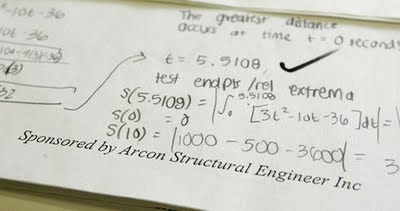 -10t-36
The greatest distance
occurs at time t = 0 seconds
10t -36
t = 5.5108
test endpts /rel extrema
S(5.5108) = |∫₀^5.5108 [3t²-10t-36]dt| =
S(0) = 0
S(10) = |1000 - 500 - 3600| = 3
Sponsored by Arcon Structural Engineer Inc